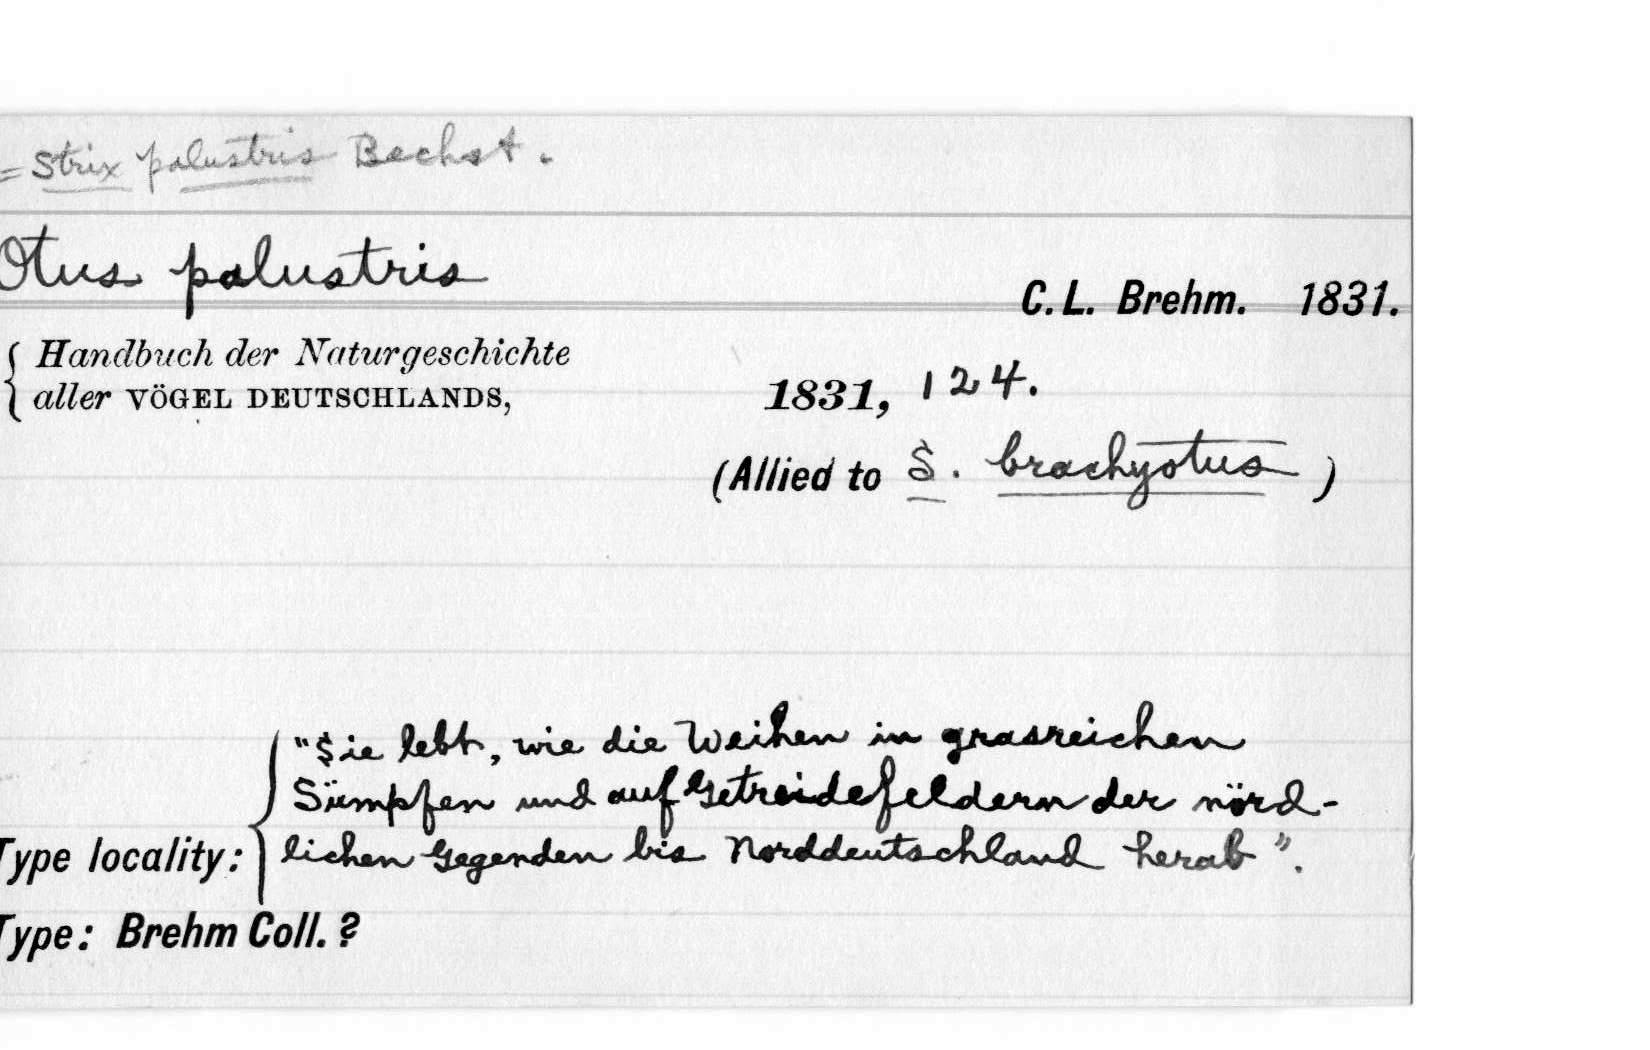 = Strix palustris Bechst.
Otus palustris
C. L. Brehm. 1831.
Handbuch der Naturgeschichte
aller VÖGEL DEUTSCHLANDS,
1831, 124.
(Allied to S. brachyotus)
"Sie lebt, wie die Weihen in grasreichen
Sümpfen und auf Getreidefeldern der nörd-
Type locality: lichen Gegenden bis Norddeutschland herab".
Type: Brehm Coll. ?